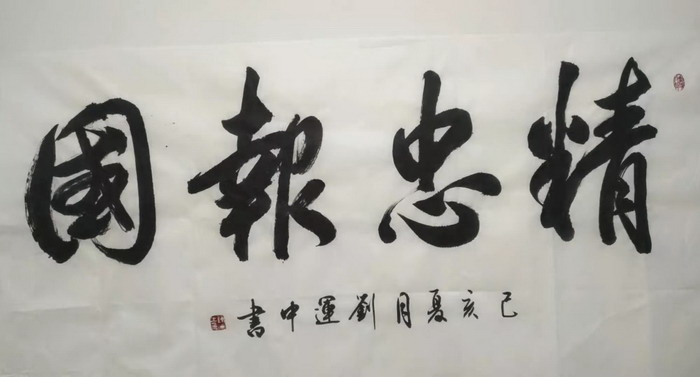 精忠報國
己亥夏月劉運中書